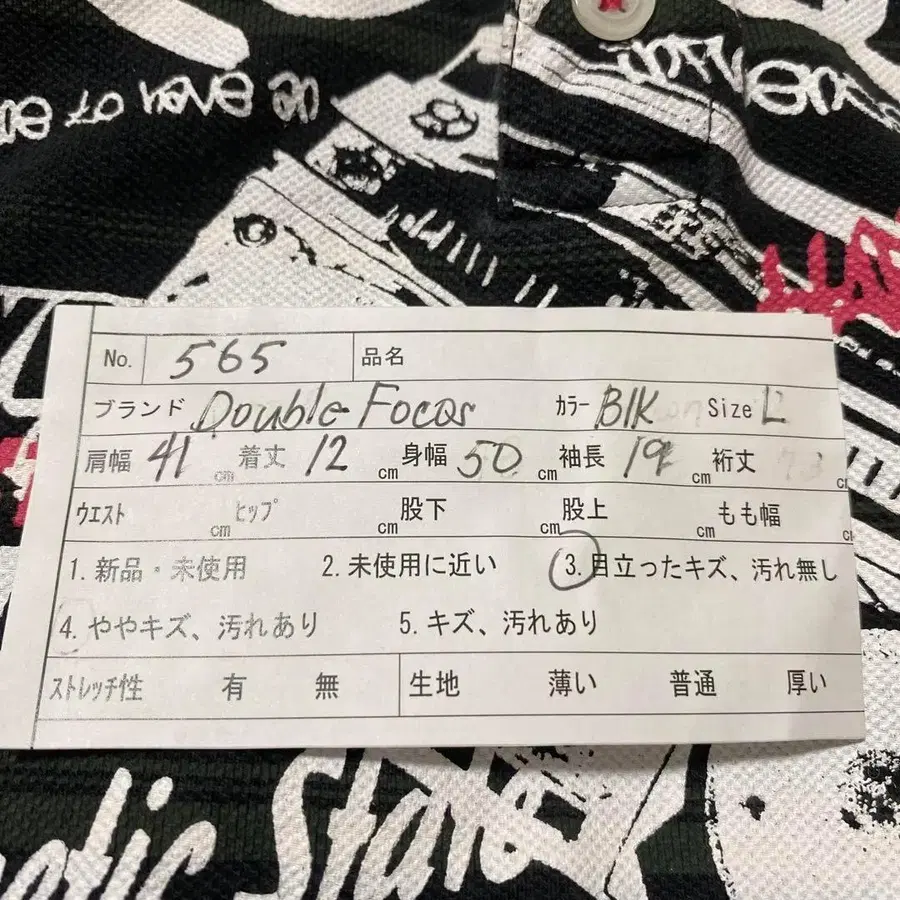 to have
No. 565 品名
ブランド Double Focas カラー Blk Size L
肩幅 41 cm 着丈 12 cm 身幅 50 cm 袖長 19 cm 裄丈 73 cm
ウエスト cm ヒップ cm 股下 cm 股上 cm もも幅 cm
1. 新品・未使用 2. 未使用に近い 3. 目立ったキズ、汚れ無し
4. ややキズ、汚れあり 5. キズ、汚れあり
ストレッチ性 有 無 生地 薄い 普通 厚い